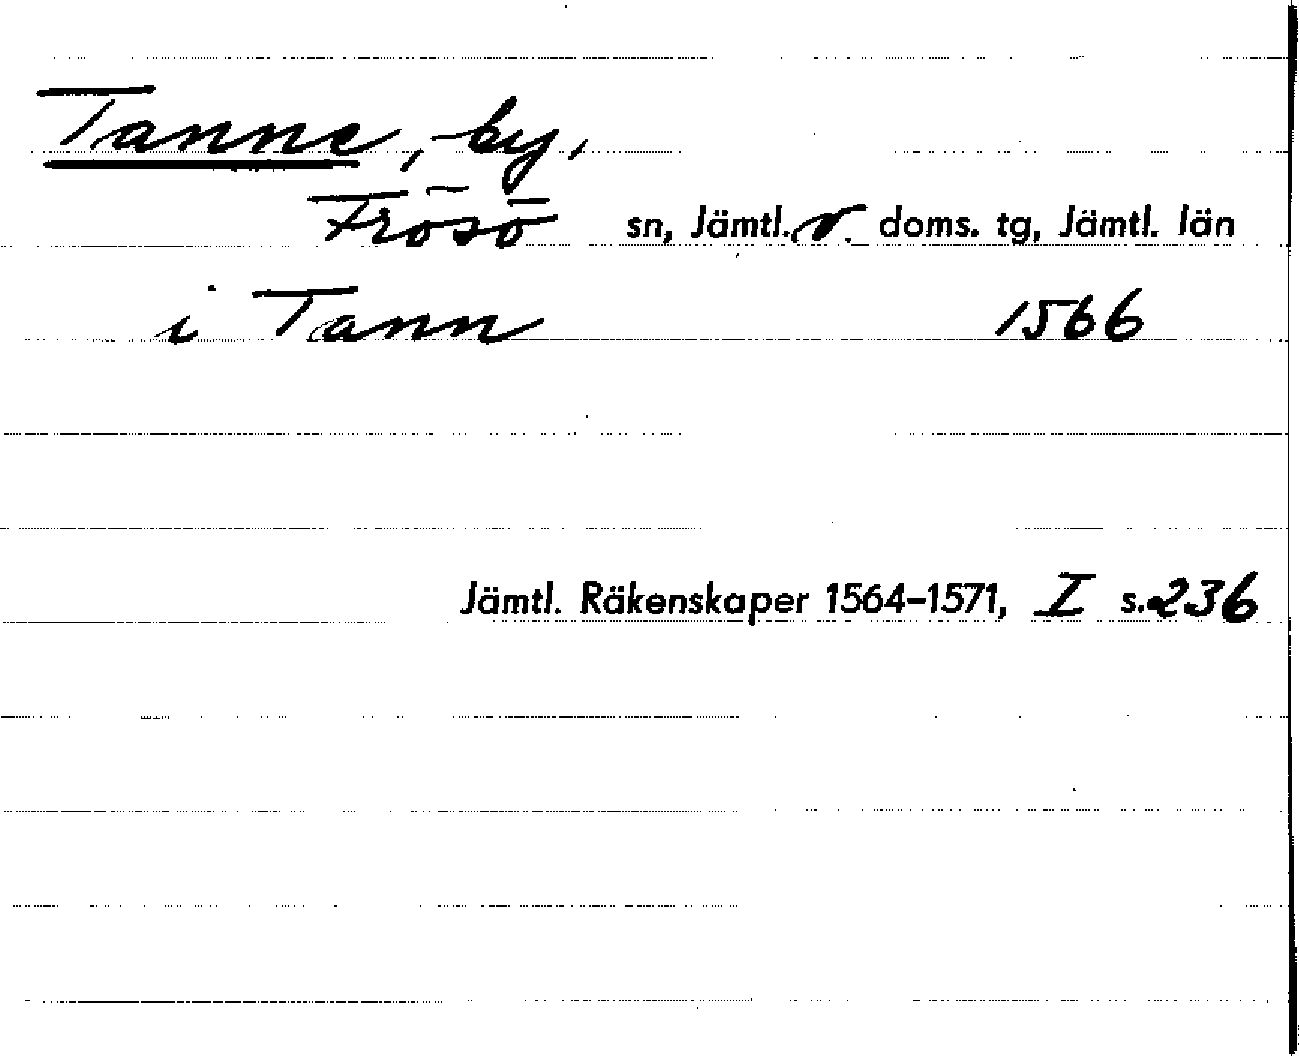 Tanne, by,
Frösö sn, Jämtl. v. doms. tg, Jämtl. län
i Tann 1566
Jämtl. Räkenskaper 1564-1571, I s. 236